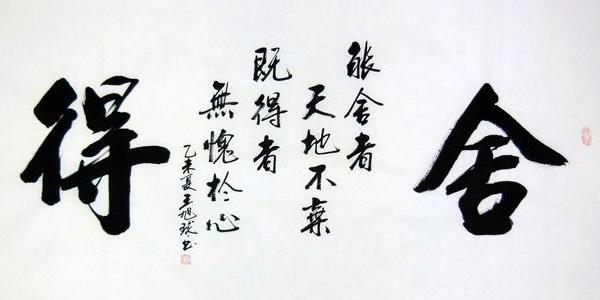 舍
能舍者
天地不棄
既得者
無愧於心
得
乙未夏王旭球书